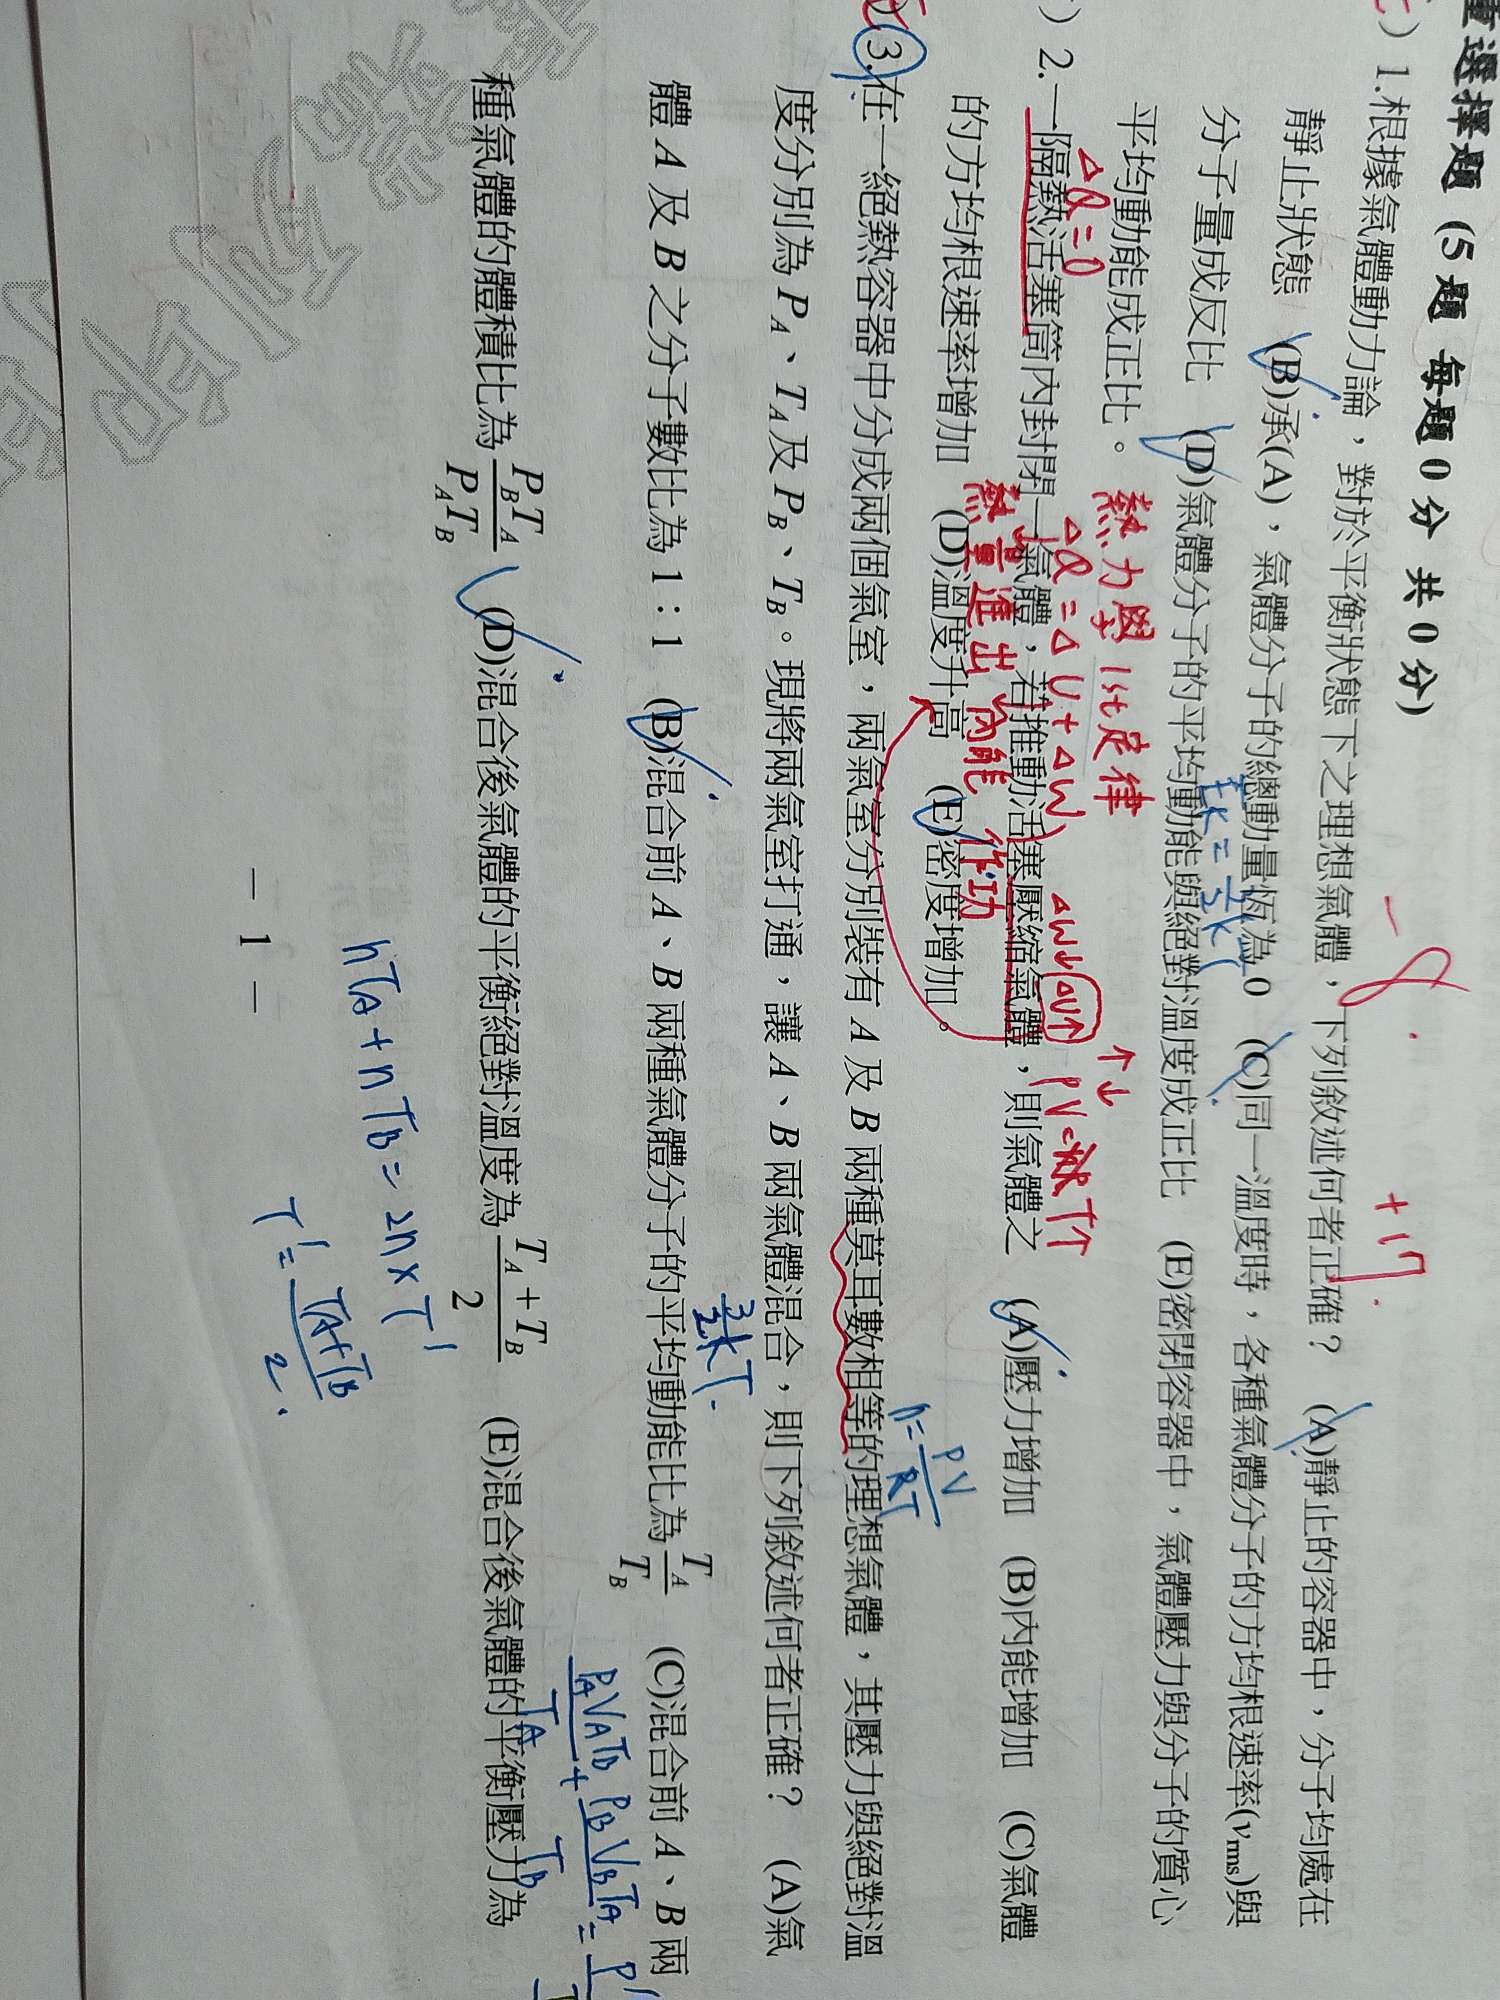 重選擇題 (5 題 每題 0 分 共 0 分)
-8 +17
) 1.根據氣體動力論，對於平衡狀態下之理想氣體，下列敘述何者正確？ (A)靜止的容器中，分子均處在
靜止狀態 (B)承(A)，氣體分子的總動量恆為 0 (C)同一溫度時，各種氣體分子的方均根速率(vrms)與
分子量成反比 (D)氣體分子的平均動能與絕對溫度成正比 (E)密閉容器中，氣體壓力與分子的質心
平均動能成正比。
熱力學 1st 定律
ΔQ=0
ΔQ=ΔU+ΔW
ΔW↓ ΔU↑
↑↓
) 2.一隔熱活塞筒內封閉一氣體，若推動活塞壓縮氣體，則氣體之 (A)壓力增加 (B)內能增加 (C)氣體
熱量進出 內能 作功
的方均根速率增加 (D)溫度升高 (E)密度增加。
n=PV/RT
3.在一絕熱容器中分成兩個氣室，兩氣室分別裝有 A 及 B 兩種莫耳數相等的理想氣體，其壓力與絕對溫
度分別為 PA、TA及 PB、TB。現將兩氣室打通，讓 A、B 兩氣體混合，則下列敘述何者正確？ (A)氣
3/2kT
體 A 及 B 之分子數比為 1：1 (B)混合前 A、B 兩種氣體分子的平均動能比為TA/TB (C)混合前 A、B 兩
種氣體的體積比為PBTA/PATB (D)混合後氣體的平衡絕對溫度為(TA+TB)/2 (E)混合後氣體的平衡壓力為
nTA+nTB=2n×T'
T'=(TA+TB)/2
－ 1 －